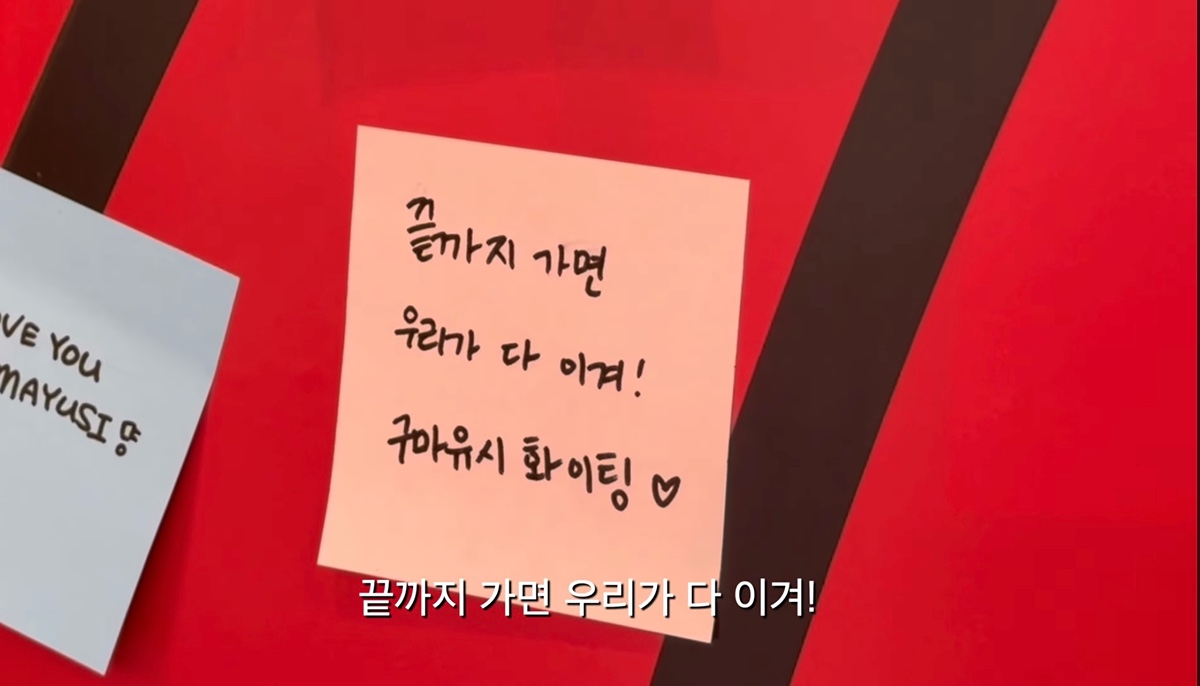 끝까지 가면
우리가 다 이겨!
구마유시 화이팅 ♡
VE YOU
MAYUSI
끝까지 가면 우리가 다 이겨!